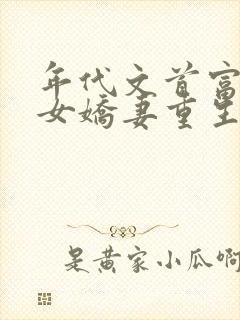 年代文首富
女嬌妻重生
是黄家小瓜啊